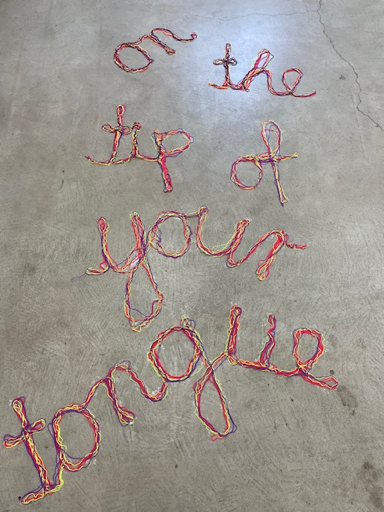 on the
tip of
your
tongue